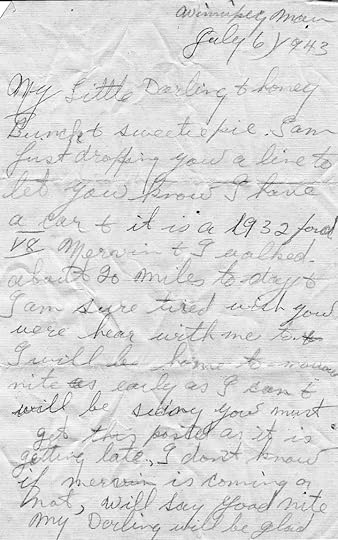 Winnipeg Man
July 6, 1943
My Little Darling & honey
Bunch & sweetie pie. I am
Just dropping you a line to
let you know I have
a car & it is a 1932 ford
V8 Mervin & I walked
about 20 miles to day &
I am sure tired wish you
were hear with me
I will be home to morrow
nite as early as I can I
will be you must
get this posted as it is
getting late. I don't know
if mervin is coming or
not, will say good nite
my Darling will be glad